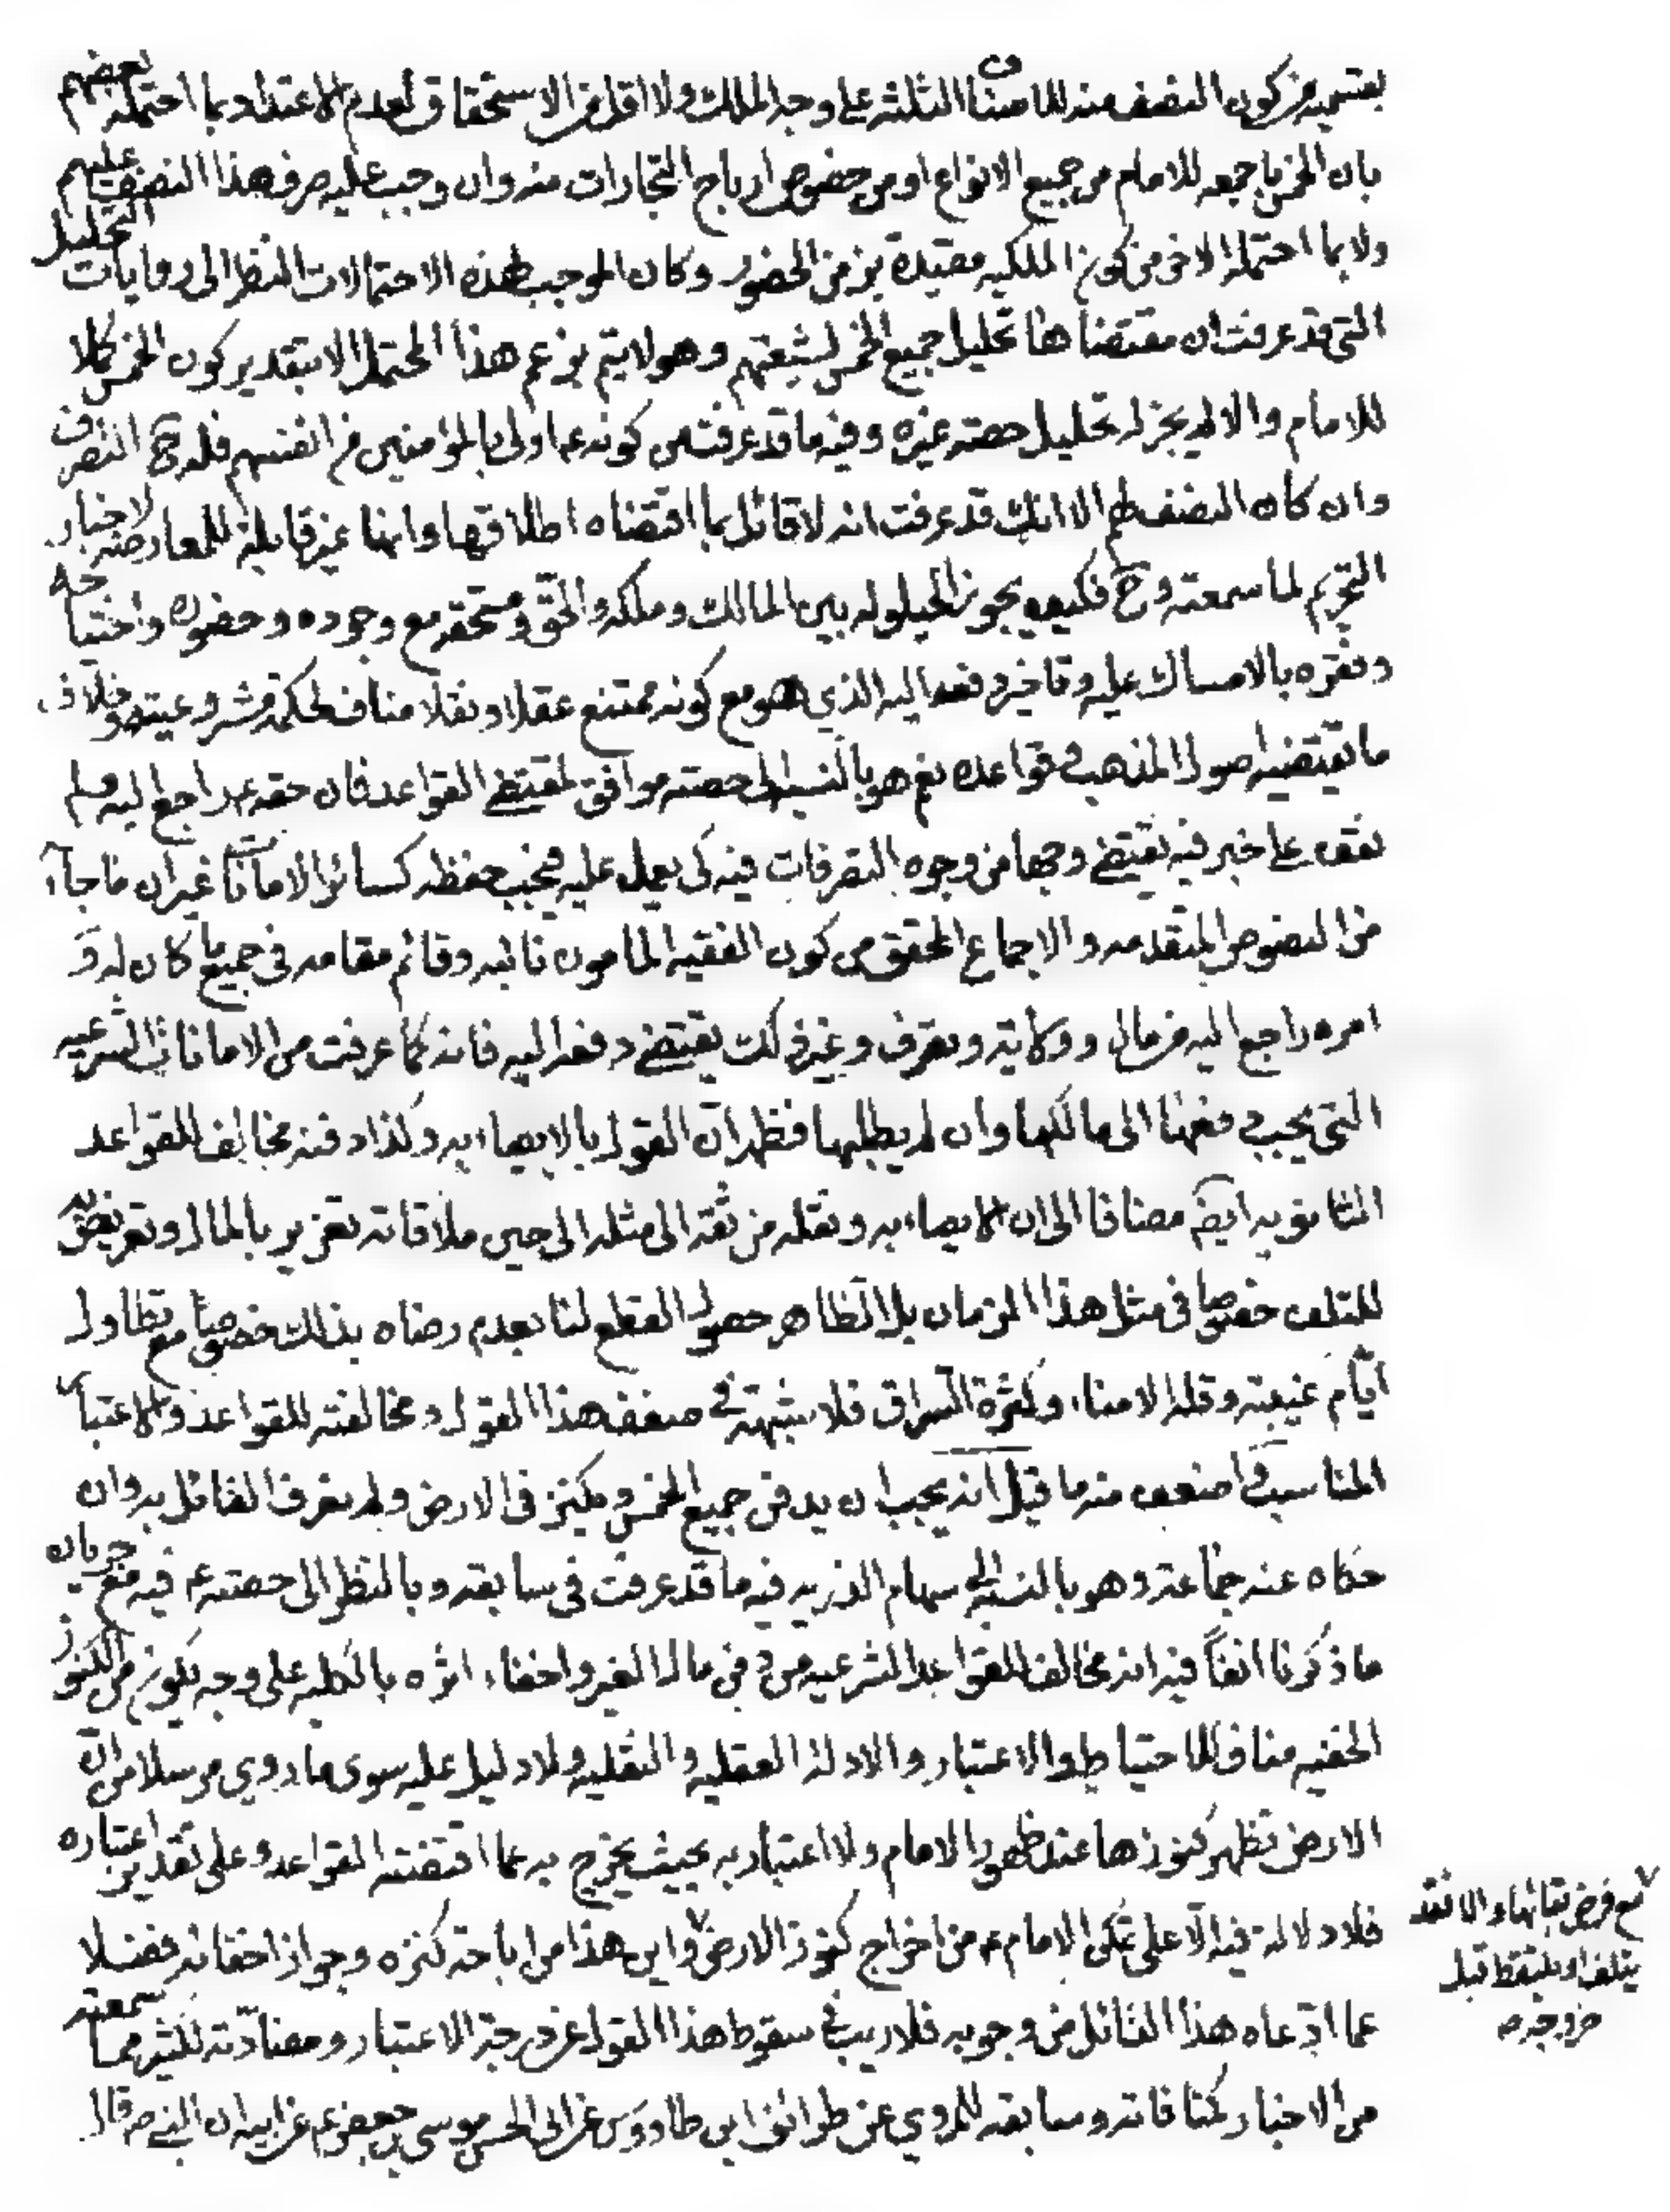 بقسميه من كون النصف منه للامناء الثلثه على وجه الملك ولا اقل من الاستحقاق لعدم الاعتداد بما احتمله بعضهم
بان الخمس باجمعه للامام من جميع الانواع او من خصوص ارباح التجارات منه وان وجب عليه صرف هذا النصف عليهم
ولا بما احتمله الاخر من كون الملكيه مقيدة بزمن الحضور وكان الموجب لهذه الاحتمالات النظر الى روايات التحليل
التى قد عرفت ان مقتضاها تحليل جميع الخمس لشيعتهم وهو لا يتم بزعم هذا المحتمل الا بتقدير كون الخمس كلا
للامام والا لم يجز له تحليل حصته غيره وفيه ما قد عرفت من كونه ع اولى بالمؤمنين من انفسهم فله ح التصرف
وان كان النصف لهم الا انك قد عرفت انه لا قائل بما اقتضاه اطلاقها وانها غير قابلة للمعارضه لاخبار
التحريم لما سمعته وح فكيف يجوز الحيلوله بين المالك وملكه والحق ومستحقه مع وجوده وحضوره واحتياجه
وفقره بالامساك عليه وتاخير دفعه اليه الذي هو مع كونه ممتنع عقلا ونقلا مناف لحكمة مشروعيته وخلاف
ما تقتضيه اصول المذهب وقواعده نعم هو بالنسبه الى حصته موافق لمقتضى القواعد فان حقه ع راجع اليه ولم
نقف على خبر فيه يقتضى وجها من وجوه التصرفات فيه كى يعمل عليه فيجب حفظه كسائر الامانات غير ان ما جاء
من النصوص المتقدمه والاجماع المحقق من كون الفقيه المامون نائبه وقائم مقامه فى جميع ما كان له و
امره راجع اليه من مال وولاية وتصرف وغير ذلك يقتضى دفعه اليه فانه كما عرفت من الامانات الشرعيه
التى يجب دفعها الى مالكها وان لم يطلبها فظهر ان القول بالايصاء به وكذا دفنه مخالف للقواعد
الثانويه ايضا مضافا الى ان الايصاء به ونقله من ثقة الى مثله الى حين ملاقاته تغرير بالمال وتعريض له
للتلف خصوصا فى مثل هذا الزمان بل الظاهر حصول القطع لنا بعدم رضاه بذلك خصوصا مع تطاول
ايام غيبته وقلة الامناء وكثرة السراق فلا شبهة فى ضعف هذا القول ومخالفته للقواعد والاعتبار
المناسب واضعف منه ما قيل انه يجب ان يدفن جميع الخمس ويكنز فى الارض ولم نعرف القائل به وان
حكاه عنه جماعة وهو بالنسبة الى سهام الذريه فيه ما قد عرفت فى سابقه وبالنظر الى حصته ع فيه مع جريان
ما ذكرنا انفاً فيه انه مخالف للقواعد الشرعيه من دفن مال الغير واخفاء اثره بالكليه على وجه يكون من الكنوز
الخفيه مناف للاحتياط والاعتبار والادلة العقليه والنقليه ولا دليل عليه سوى ما روي مرسلا من ان
الارض تظهر كنوزها عند ظهور الامام ولا اعتبار به بحيث يخرج به عما اقتضته القواعد وعلى تقدير اعتباره
فلا دلالة فيه الا على تمكن الامام ع من اخراج كنوز الارض واين هذا من اباحة كنزه وجواز اخفائه فضلا
عما ادعاه هذا القائل من وجوبه فلا ريب فى سقوط هذا القول عن درجة الاعتبار ومضادته لكثير مما سمعته
من الاخبار كمنافاته وسابقه للمروي عن طرائف ابن طاووس عن ابى الحسن موسى بن جعفر ع عن ابيه ان النبى ص قال
مع فرض بقائها والا فقد
يتلف او يلتقط قبل
خروجه ص